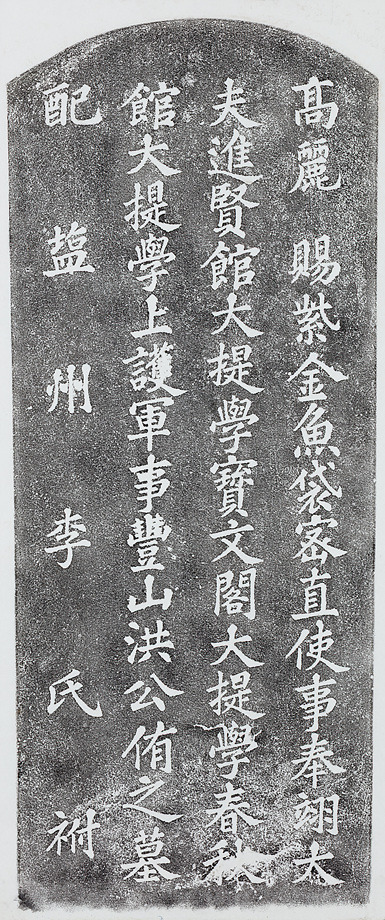 高麗 賜紫金魚袋密直使事奉翊大
夫進賢館大提學寶文閣大提學春秋
館大提學上護軍事豐山洪公侑之墓
配 塩 州 李 氏 祔